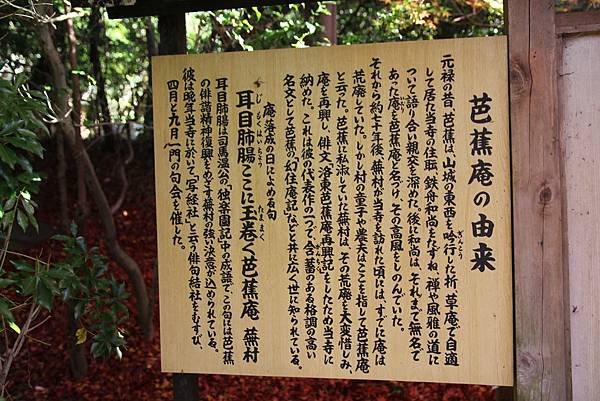 芭蕉庵の由来
元禄の昔、芭蕉は、山城の東西を吟行した折、草庵で自適
して居た当寺の住職・鉄舟和尚をたずね、禅や風雅の道に
ついて語り合い親交を深めた。後に和尚は、それまで無名で
あった庵を芭蕉庵と名づけ、その高風をしのんでいた。
それから約七十年後、蕪村が当寺を訪れた頃には、すでに庵は
荒廃していた。しかし村の童子や農夫はここを指して芭蕉庵
と云った。芭蕉に私淑していた蕪村は、その荒廃を大変惜しみ、
庵を再興し、俳文『洛東芭蕉庵再興記』をしたため当寺に
納めた。これは彼の代表作の一つで、含蓄のある格調の高い
名文として芭蕉の『幻住庵記』などと共に広く世に知られている。
庵落成の日によめる句
耳目肺腸ここに玉巻く芭蕉庵 蕪村
耳目肺腸は司馬温公の『独楽園記』中の成語で、この句には芭蕉
の俳諧精神復興をめざす蕪村の強い決意が込められている。
彼は晩年当寺に於いて、「写経社」と云う俳句結社をむすび、
四月と九月、一門の句会を催した。